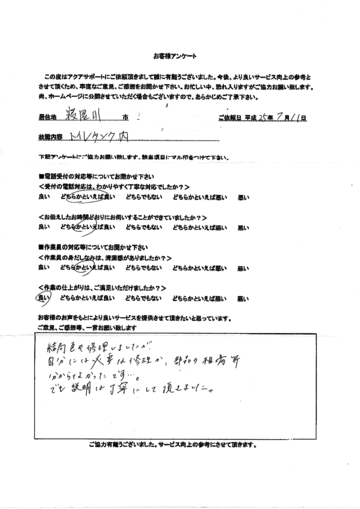 お客様アンケート
この度はアクアサポートにご依頼頂きまして誠に有難うございました。今後、より良いサービス向上の参考と
させて頂くため、率直なご意見、ご感想をお聞かせ下さい。お忙しい中、恐れ入りますがご協力お願い致します。
尚、ホームページに公開させていただく場合もございますので、あらかじめご了承下さい。
居住地 寝屋川 市 ご依頼日 平成 25年 7月 11日
故障内容 トイレタンク内
下記アンケートにご協力お願い致します。該当項目にマル印をつけて下さい。
■電話受付の対応等についてお聞かせ下さい
＜受付の電話対応は、わかりやすく丁寧な対応でしたか？＞
良い どちらかといえば良い どちらでもない どちらかといえば悪い 悪い
＜お伝えしたお時間どおりにお伺いすることができていましたか？＞
良い どちらかといえば良い どちらでもない どちらかといえば悪い 悪い
■作業員の対応等についてお聞かせ下さい
＜作業員の身だしなみは、清潔感がありましたか？＞
良い どちらかといえば良い どちらでもない どちらかといえば悪い 悪い
＜作業の仕上がりは、ご満足いただけましたか？＞
良い どちらかといえば良い どちらでもない どちらかといえば悪い 悪い
お客様のお声をもとにより良いサービスを提供させて頂きたいと思っています。
ご意見、ご感想等、一言お願い致します
修理しましたが
自分には 修理か、部品の相場等
分からなかったです…。
でも説明は丁寧にして頂きました。
ご協力有難うございました。サービス向上の参考にさせて頂きます。